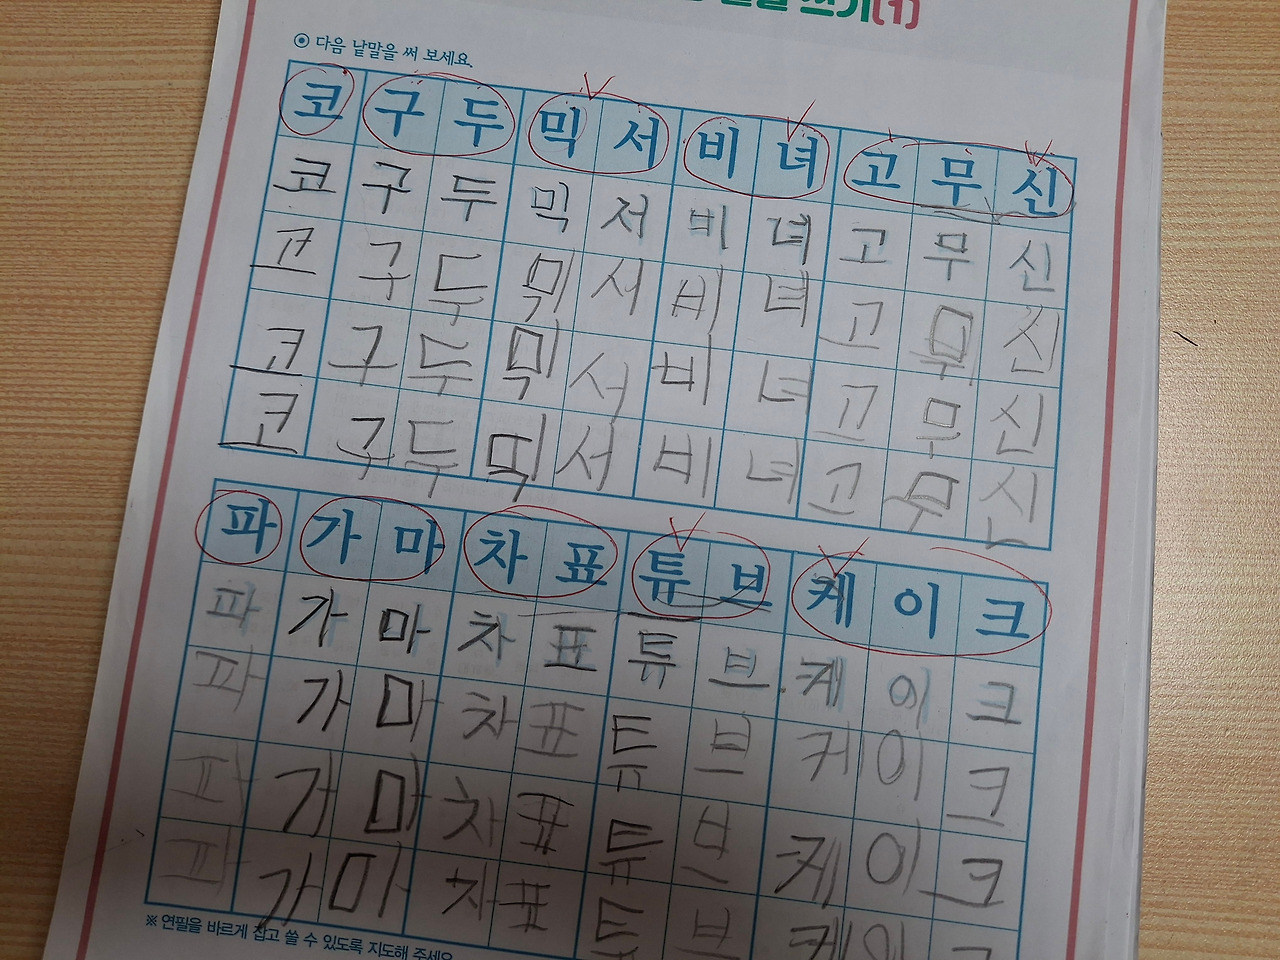 쓰기(1)
다음 낱말을 써 보세요.
코 구두 믹서 비녀 고무신
코 구두 믹서 비녀 고무신
코 구두 믹서 비녀 고무신
코 구두 믹서 비녀 고무신
코 구두 믹서 비녀 고무신
파 가마 차표 튜브 케이크
파 가마 차표 튜브 케이크
파 가마 차표 튜브 케이크
파 가마 차표 튜브 케이크
파 가마 차표 튜브 케이크
※ 연필을 바르게 잡고 쓸 수 있도록 지도해 주세요.